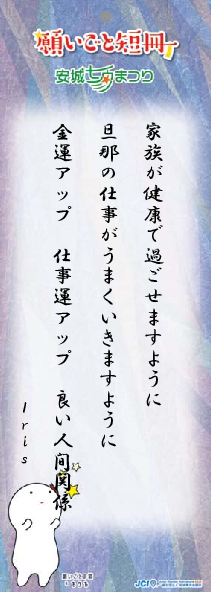 願いごと短冊
安城七夕まつり
家族が健康で過ごせますように
旦那の仕事がうまくいきますように
金運アップ　仕事運アップ　良い人間関係
Iris
願いごと短冊
JCI